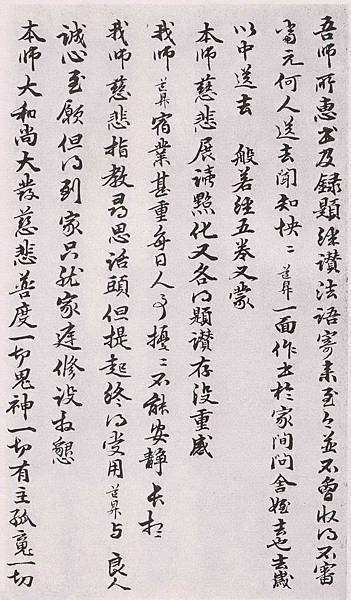 吾師所惠書及錄題經讚法語寄來至今並不曾收得不審
當元何人送去聞知怏〻道昇一面作書於家間問舍姪去也去歲
以中送去 般若經五卷又蒙
本師慈悲展讀點化又各得題讚存沒重感
我師道昇宿業甚重每日人事擾〻不能安靜長想
我師慈悲指教尋思話頭但提起終得受用道昇與良人
誠心至願但得到家只就家庭修設投懇
本師大和尚大發慈悲普度一切鬼神一切有主孤魂一切